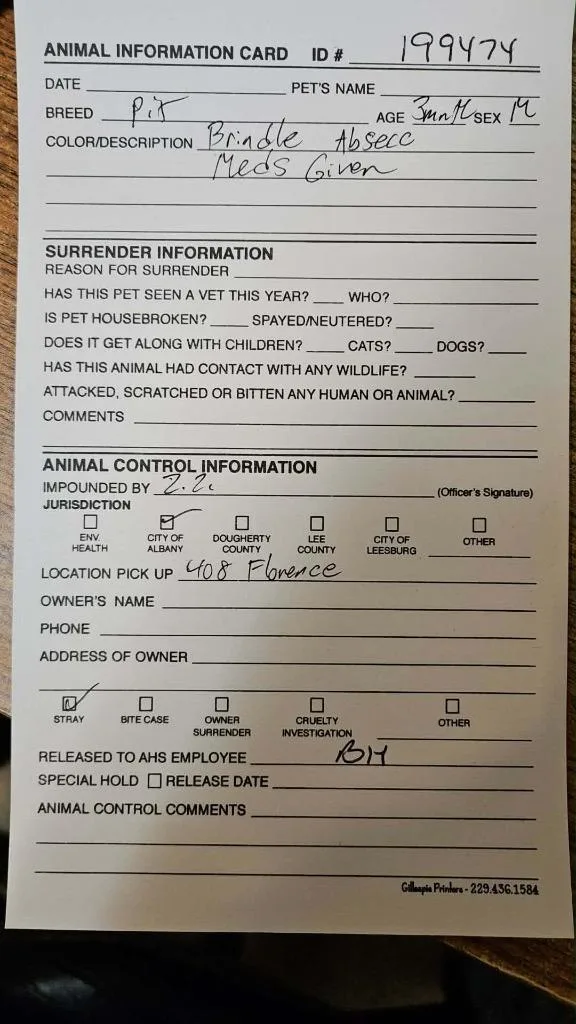 ANIMAL INFORMATION CARD ID # 199474
DATE PET'S NAME
BREED Pit AGE 3mnth SEX M
COLOR/DESCRIPTION Brindle Absecc
Meds Given
SURRENDER INFORMATION
REASON FOR SURRENDER
HAS THIS PET SEEN A VET THIS YEAR? WHO?
IS PET HOUSEBROKEN? SPAYED/NEUTERED?
DOES IT GET ALONG WITH CHILDREN? CATS? DOGS?
HAS THIS ANIMAL HAD CONTACT WITH ANY WILDLIFE?
ATTACKED, SCRATCHED OR BITTEN ANY HUMAN OR ANIMAL?
COMMENTS
ANIMAL CONTROL INFORMATION
IMPOUNDED BY (Officer's Signature)
JURISDICTION
ENV. HEALTH CITY OF ALBANY DOUGHERTY COUNTY LEE COUNTY CITY OF LEESBURG OTHER
LOCATION PICK UP 408 Florence
OWNER'S NAME
PHONE
ADDRESS OF OWNER
STRAY BITE CASE OWNER SURRENDER CRUELTY INVESTIGATION OTHER
RELEASED TO AHS EMPLOYEE BH
SPECIAL HOLD RELEASE DATE
ANIMAL CONTROL COMMENTS
Gillespie Printers - 229.436.1584